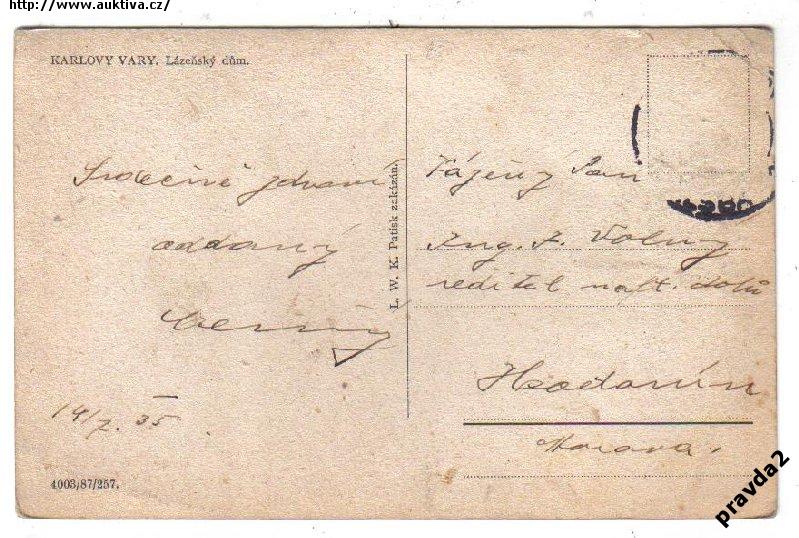 http://www.auktiva.cz/
KARLOVY VARY. Lázeňský dům.
Srdečně zdraví
oddaný
Černý
14/7. 35
4003/87/257.
L. W. K. Patisk zakázán.
Vážený Pan
Ing. J. Volný
reditel naft. dolů
Hodonín
Morava.
pravda2